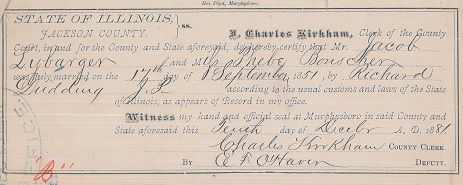 Dan Pfost, Murphysboro.
STATE OF ILLINOIS,
JACKSON COUNTY.
ss.
I, Charles Kirkham, Clerk of the County
Court, in and for the County and State aforesaid, do hereby certify that Mr. Jacob
Lybarger and M Pheby Bouscher
was duly married on the 17th day of September 1851 by Richard
Dudding J.P. according to the usual customs and laws of the State
of Illinois, as appears of Record in my office.
Witness my hand and official seal at Murphysboro in said County and
State aforesaid this Tenth day of Decebr A. D. 1881
Charles Kirkham COUNTY CLERK.
BY E F O'Haven DEPUTY.
"B"